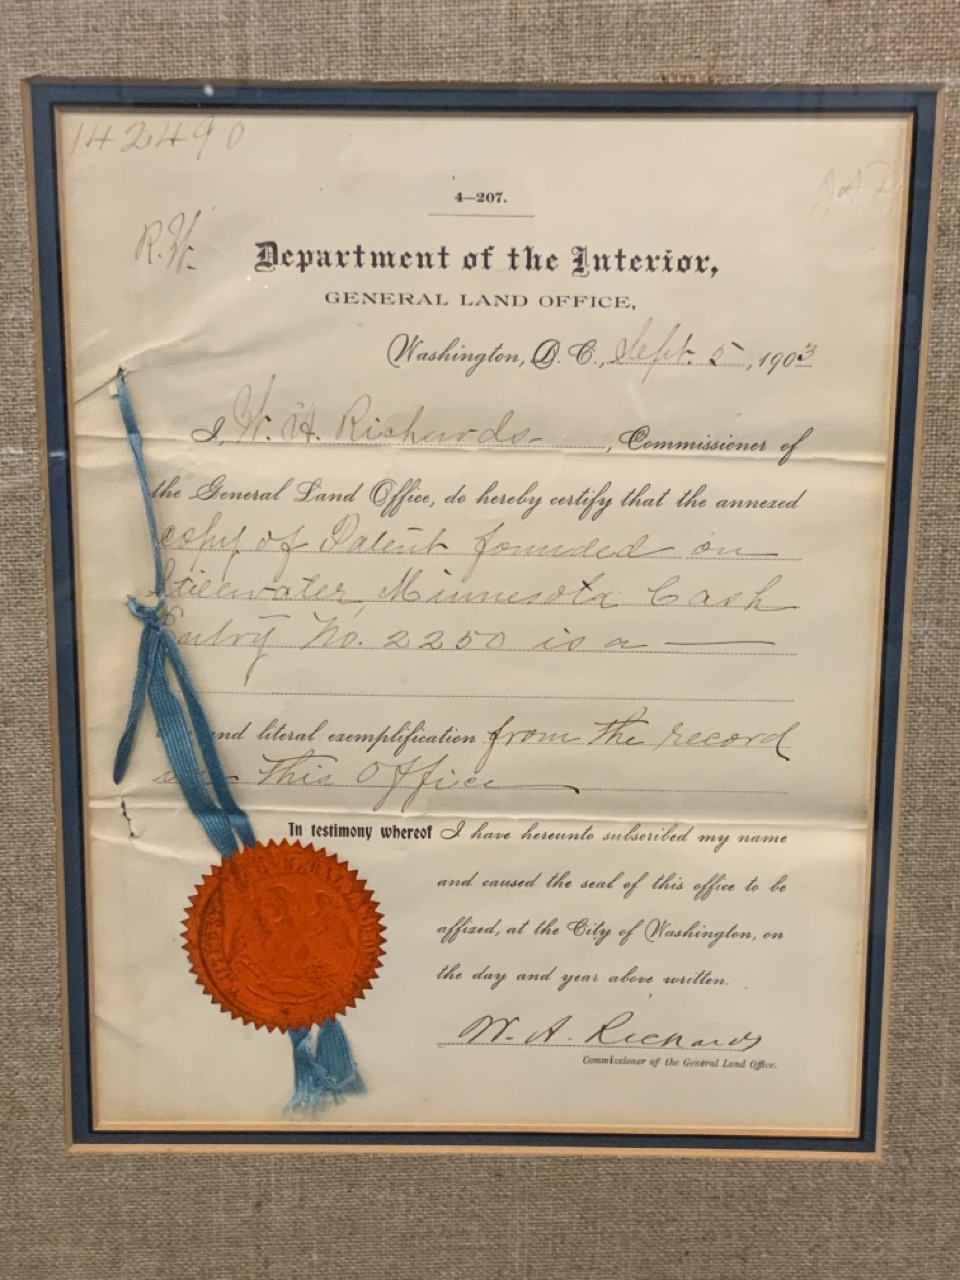 142490
4—207.
R.H.
Department of the Interior,
GENERAL LAND OFFICE,
Washington, D. C., Sept. 5, 1903
I, W. A. Richards, Commissioner of
the General Land Office, do hereby certify that the annexed
copy of Patent founded on
Stillwater, Minnesota Cash
Entry No. 2250 is a
and literal exemplification from the record
in this Office
In testimony whereof I have hereunto subscribed my name
and caused the seal of this office to be
affixed, at the City of Washington, on
the day and year above written.
W. A. Richards
Commissioner of the General Land Office.